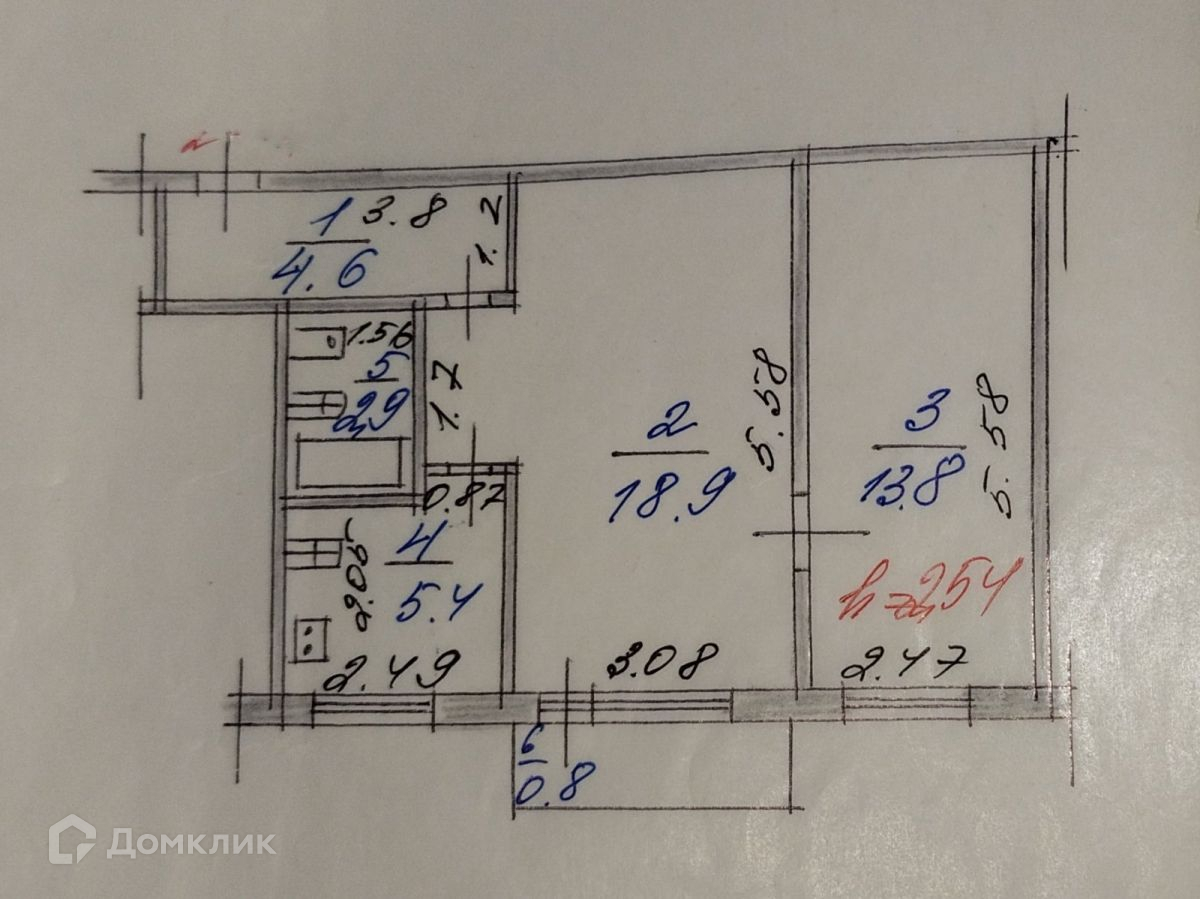 1 3.8
4.6
1.2
1.56
5
2,9
1.7
0.87
2
18.9
5.58
3
13.8
5.58
4
5.4
2.05
h=2,54
2.49
3.08
2.47
6
0.8
Домклик